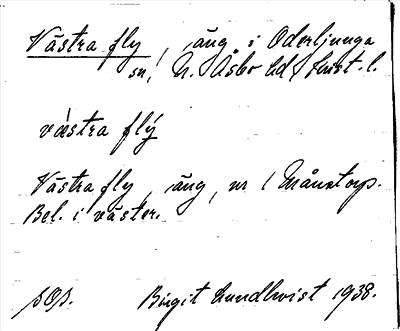 Västra fly, äng i Oderljunga
sn, N. Åsbo hd, Krist. l.
västra flý
Västra fly, äng, nr 1 Månstorp.
Bel. i väster.
sOp. Birgit Lundkvist 1938.